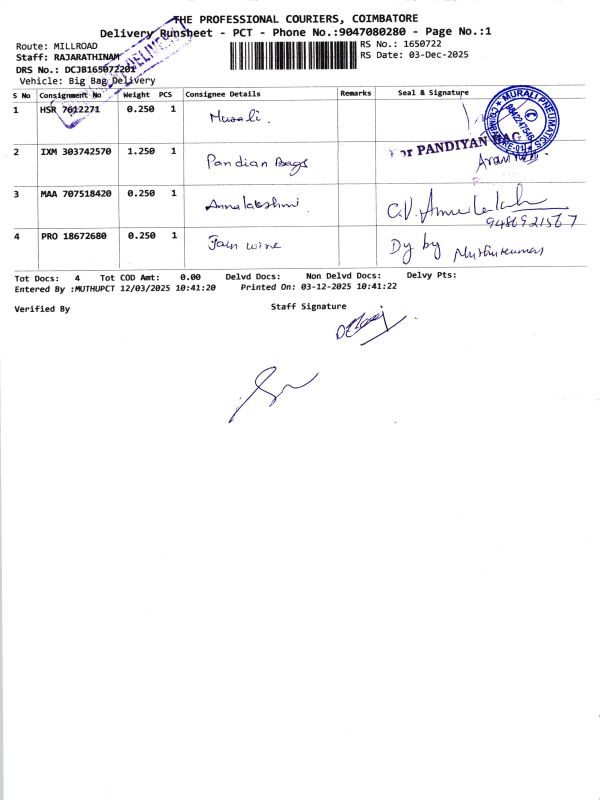 THE PROFESSIONAL COURIERS, COIMBATORE
Delivery Runsheet - PCT - Phone No.:9047080280 - Page No.:1
Route: MILLROAD
RS No.: 1650722
Staff: RAJARATHINAM
RS Date: 03-Dec-2025
DRS No.: DCJB165072201
Vehicle: Big Bag Delivery
S No Consignment No Weight PCS Consignee Details Remarks Seal & Signature
1 HSR 7612271 0.250 1 Murali.
MURALI PNEUMATICS
2 IXM 303742570 1.250 1 Pandian Bags
For PANDIYAN BAG
3 MAA 707518420 0.250 1 Annalakshmi.
9486921567
4 PRO 18672680 0.250 1 Jain wine Dy by Muthukumar
Tot Docs: 4 Tot COD Amt: 0.00 Delvd Docs: Non Delvd Docs: Delvy Pts:
Entered By :MUTHUPCT 12/03/2025 10:41:20 Printed On: 03-12-2025 10:41:22
Verified By Staff Signature